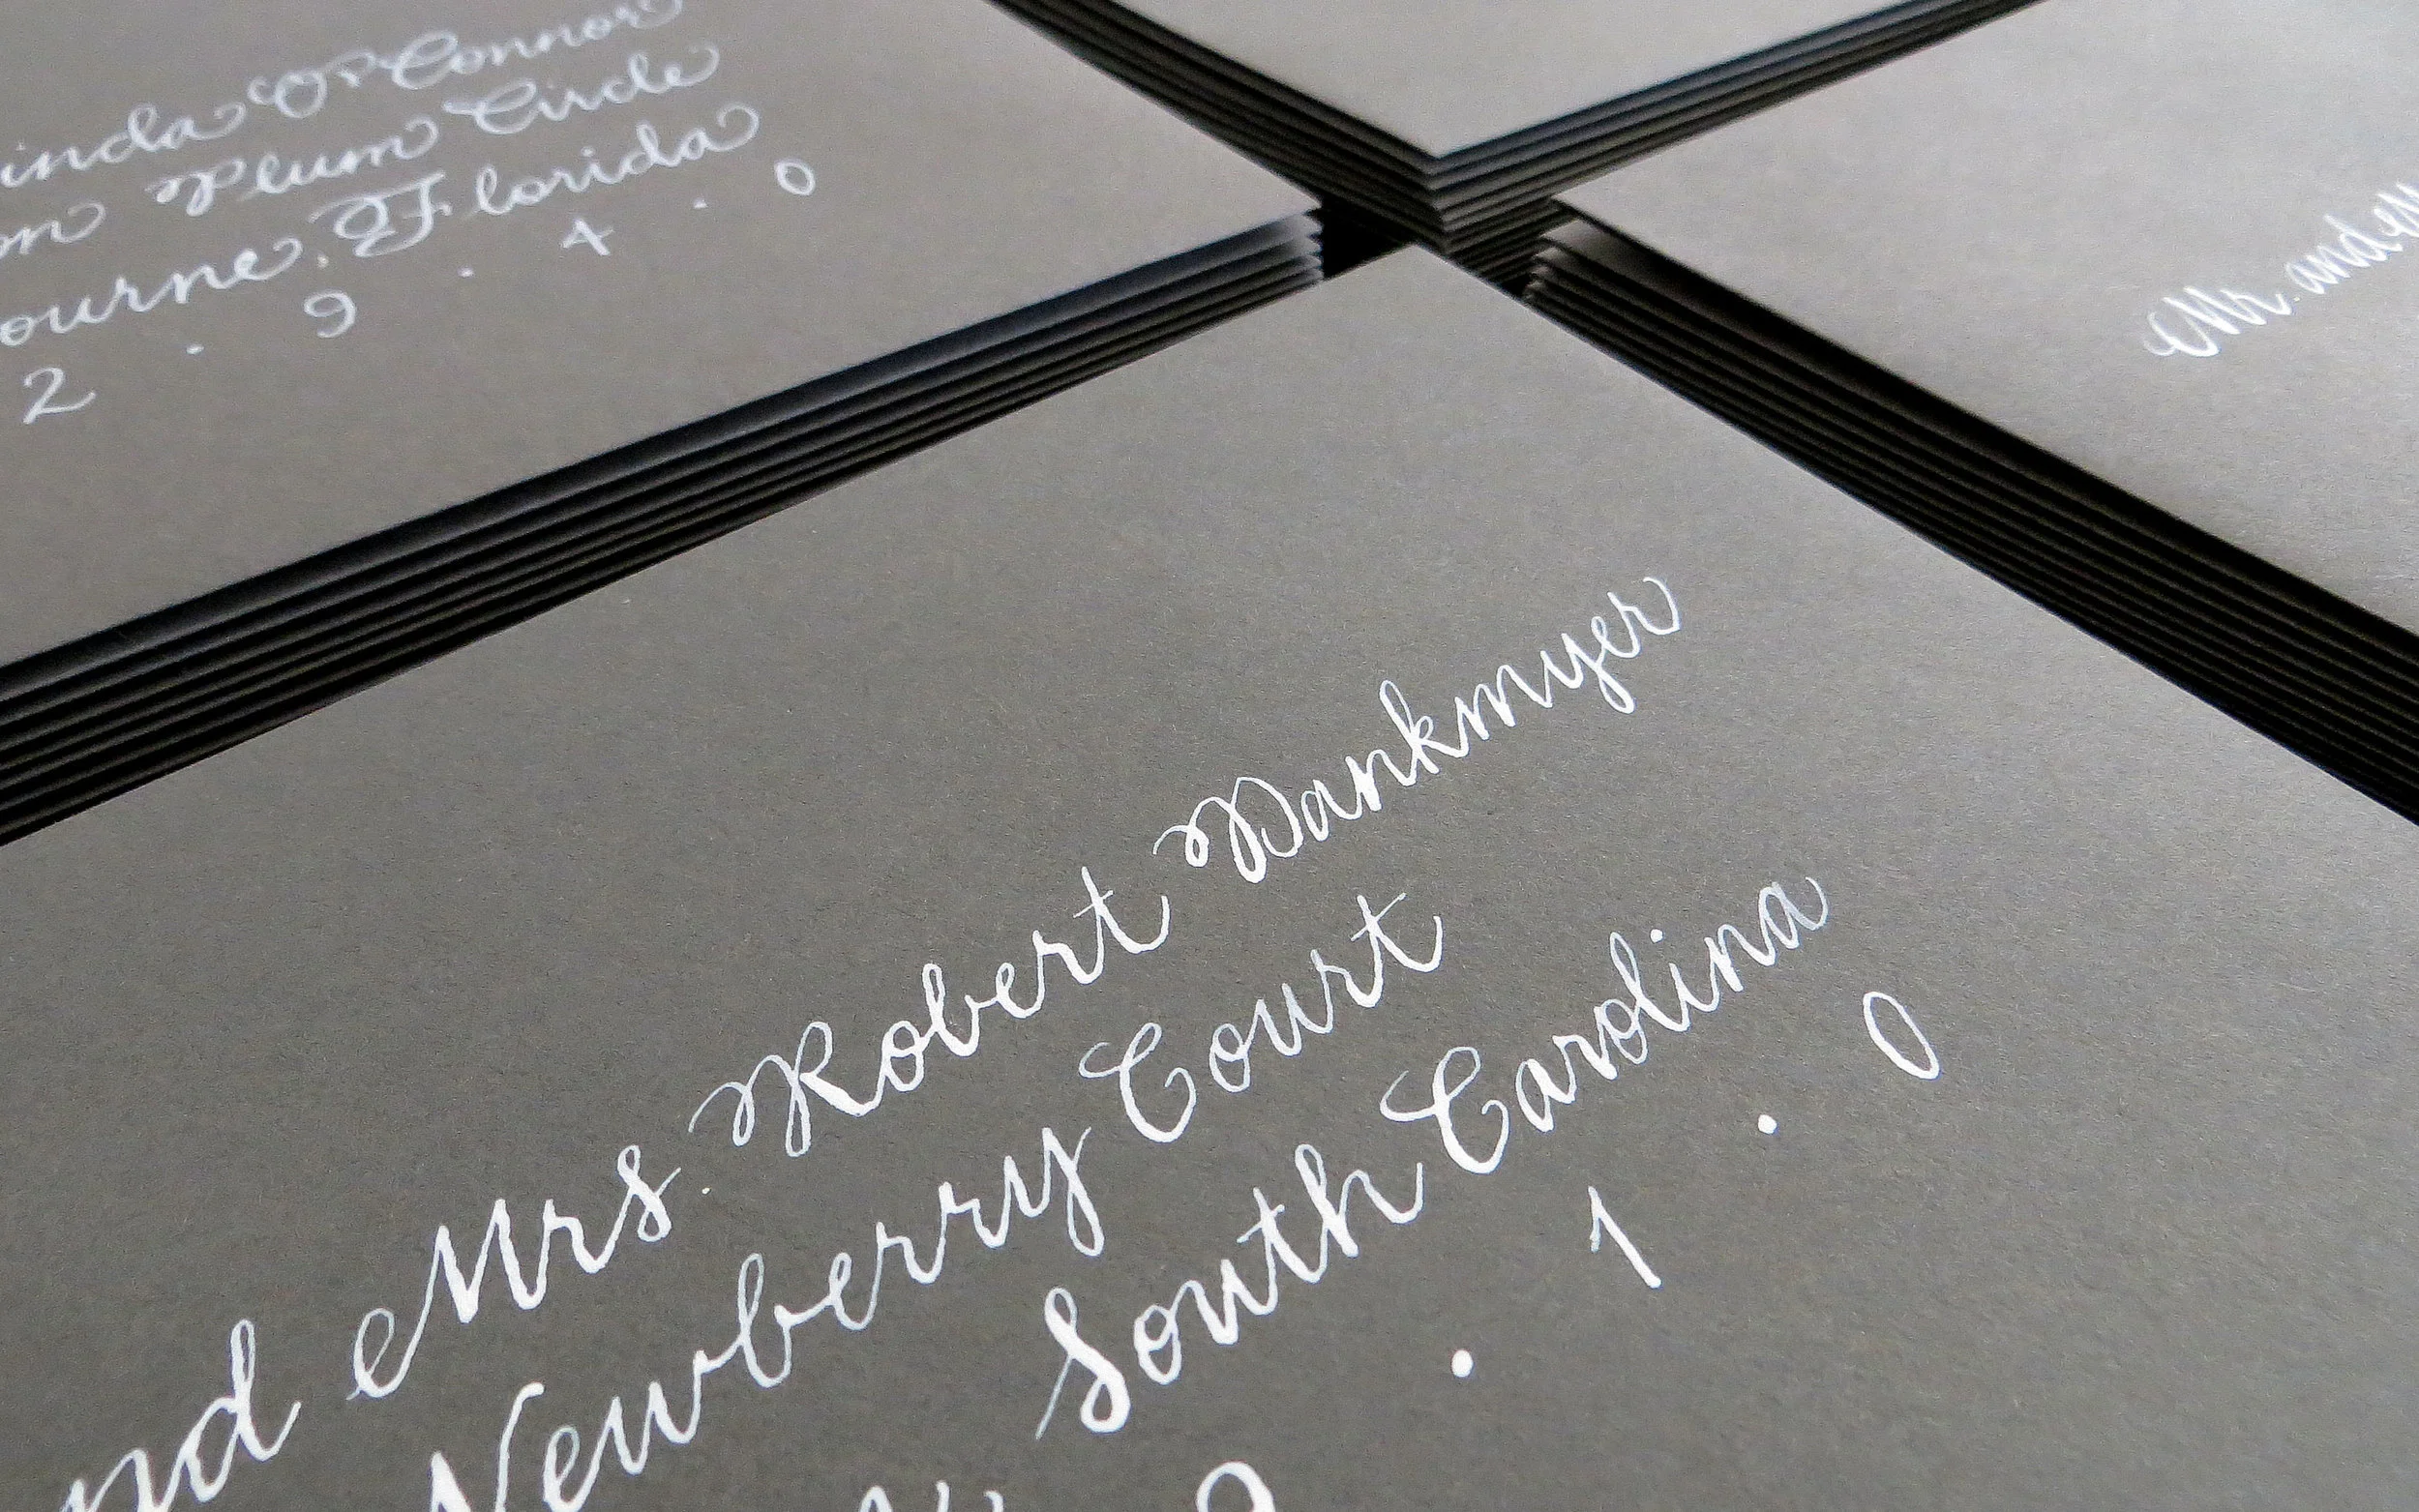 inda O'Connor
on Plum Circle
ourne, Florida
2 . 9 . 4 . 0
Mr. and
nd Mrs. Robert Dankmyer
Newberry Court
South Carolina
. 1 . 0